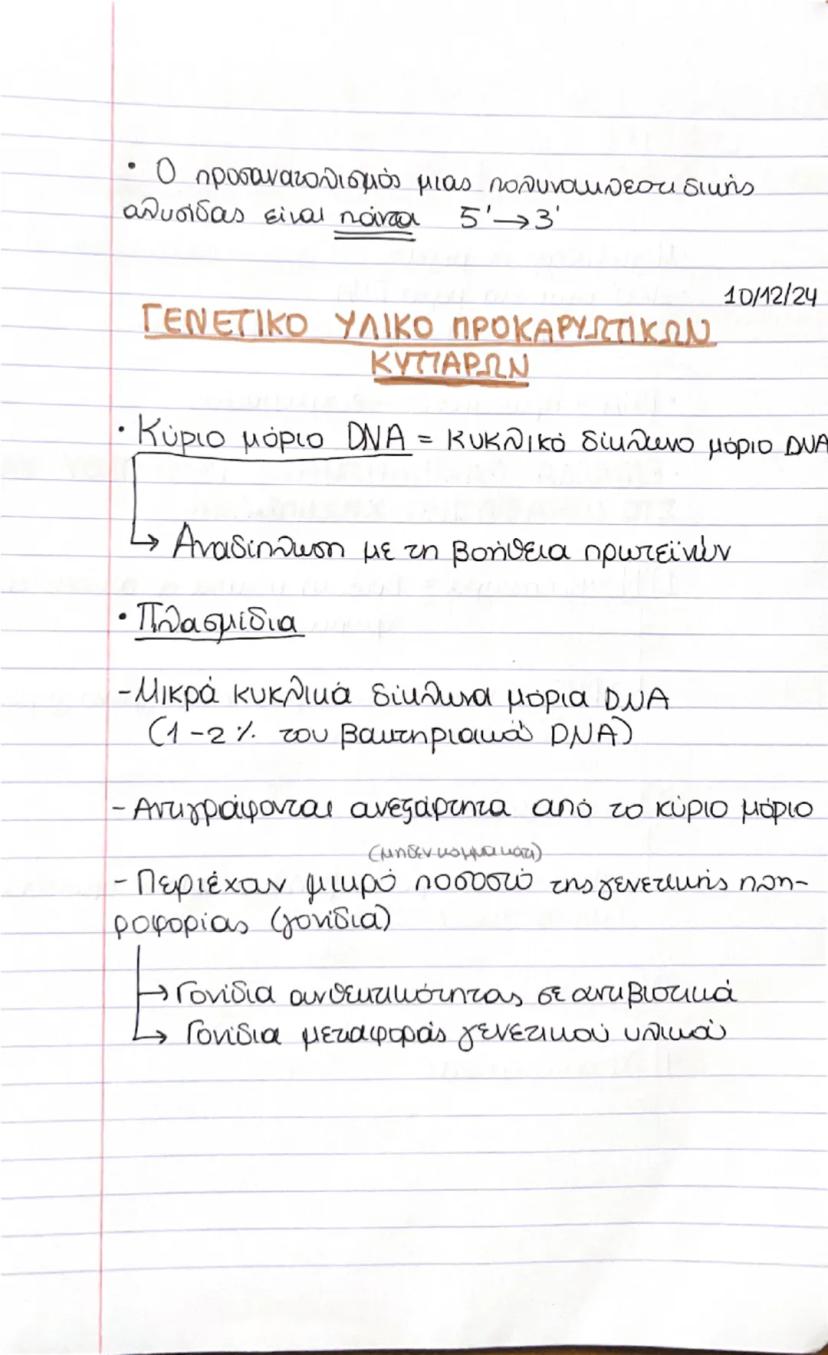 • Ο προσανατολισμός μιας πολυνουκλεοτιδικής
αλυσίδας είναι πάντα 5' → 3'
10/12/24
ΓΕΝΕΤΙΚΟ ΥΛΙΚΟ ΠΡΟΚΑΡΥΩΤΙΚΩΝ
ΚΥΤΤΑΡΩΝ
• Κύριο μόριο DNA = κυκλικό δίκλωνο μόριο DNA
↳ Αναδίπλωση με τη βοήθεια πρωτεϊνών
• Πλασμίδια
- Μικρά κυκλικά δίκλωνα μόρια DNA
(1-2 % του βακτηριακού DNA)
- Αντιγράφονται ανεξάρτητα από το κύριο μόριο
(μηδέν κόμμα κάτι)
- Περιέχουν μικρό ποσοστό της γενετικής πλη-
ροφορίας (γονίδια)
→ Γονίδια ανθεκτικότητας σε αντιβιοτικά
↳ Γονίδια μεταφοράς γενετικού υλικού